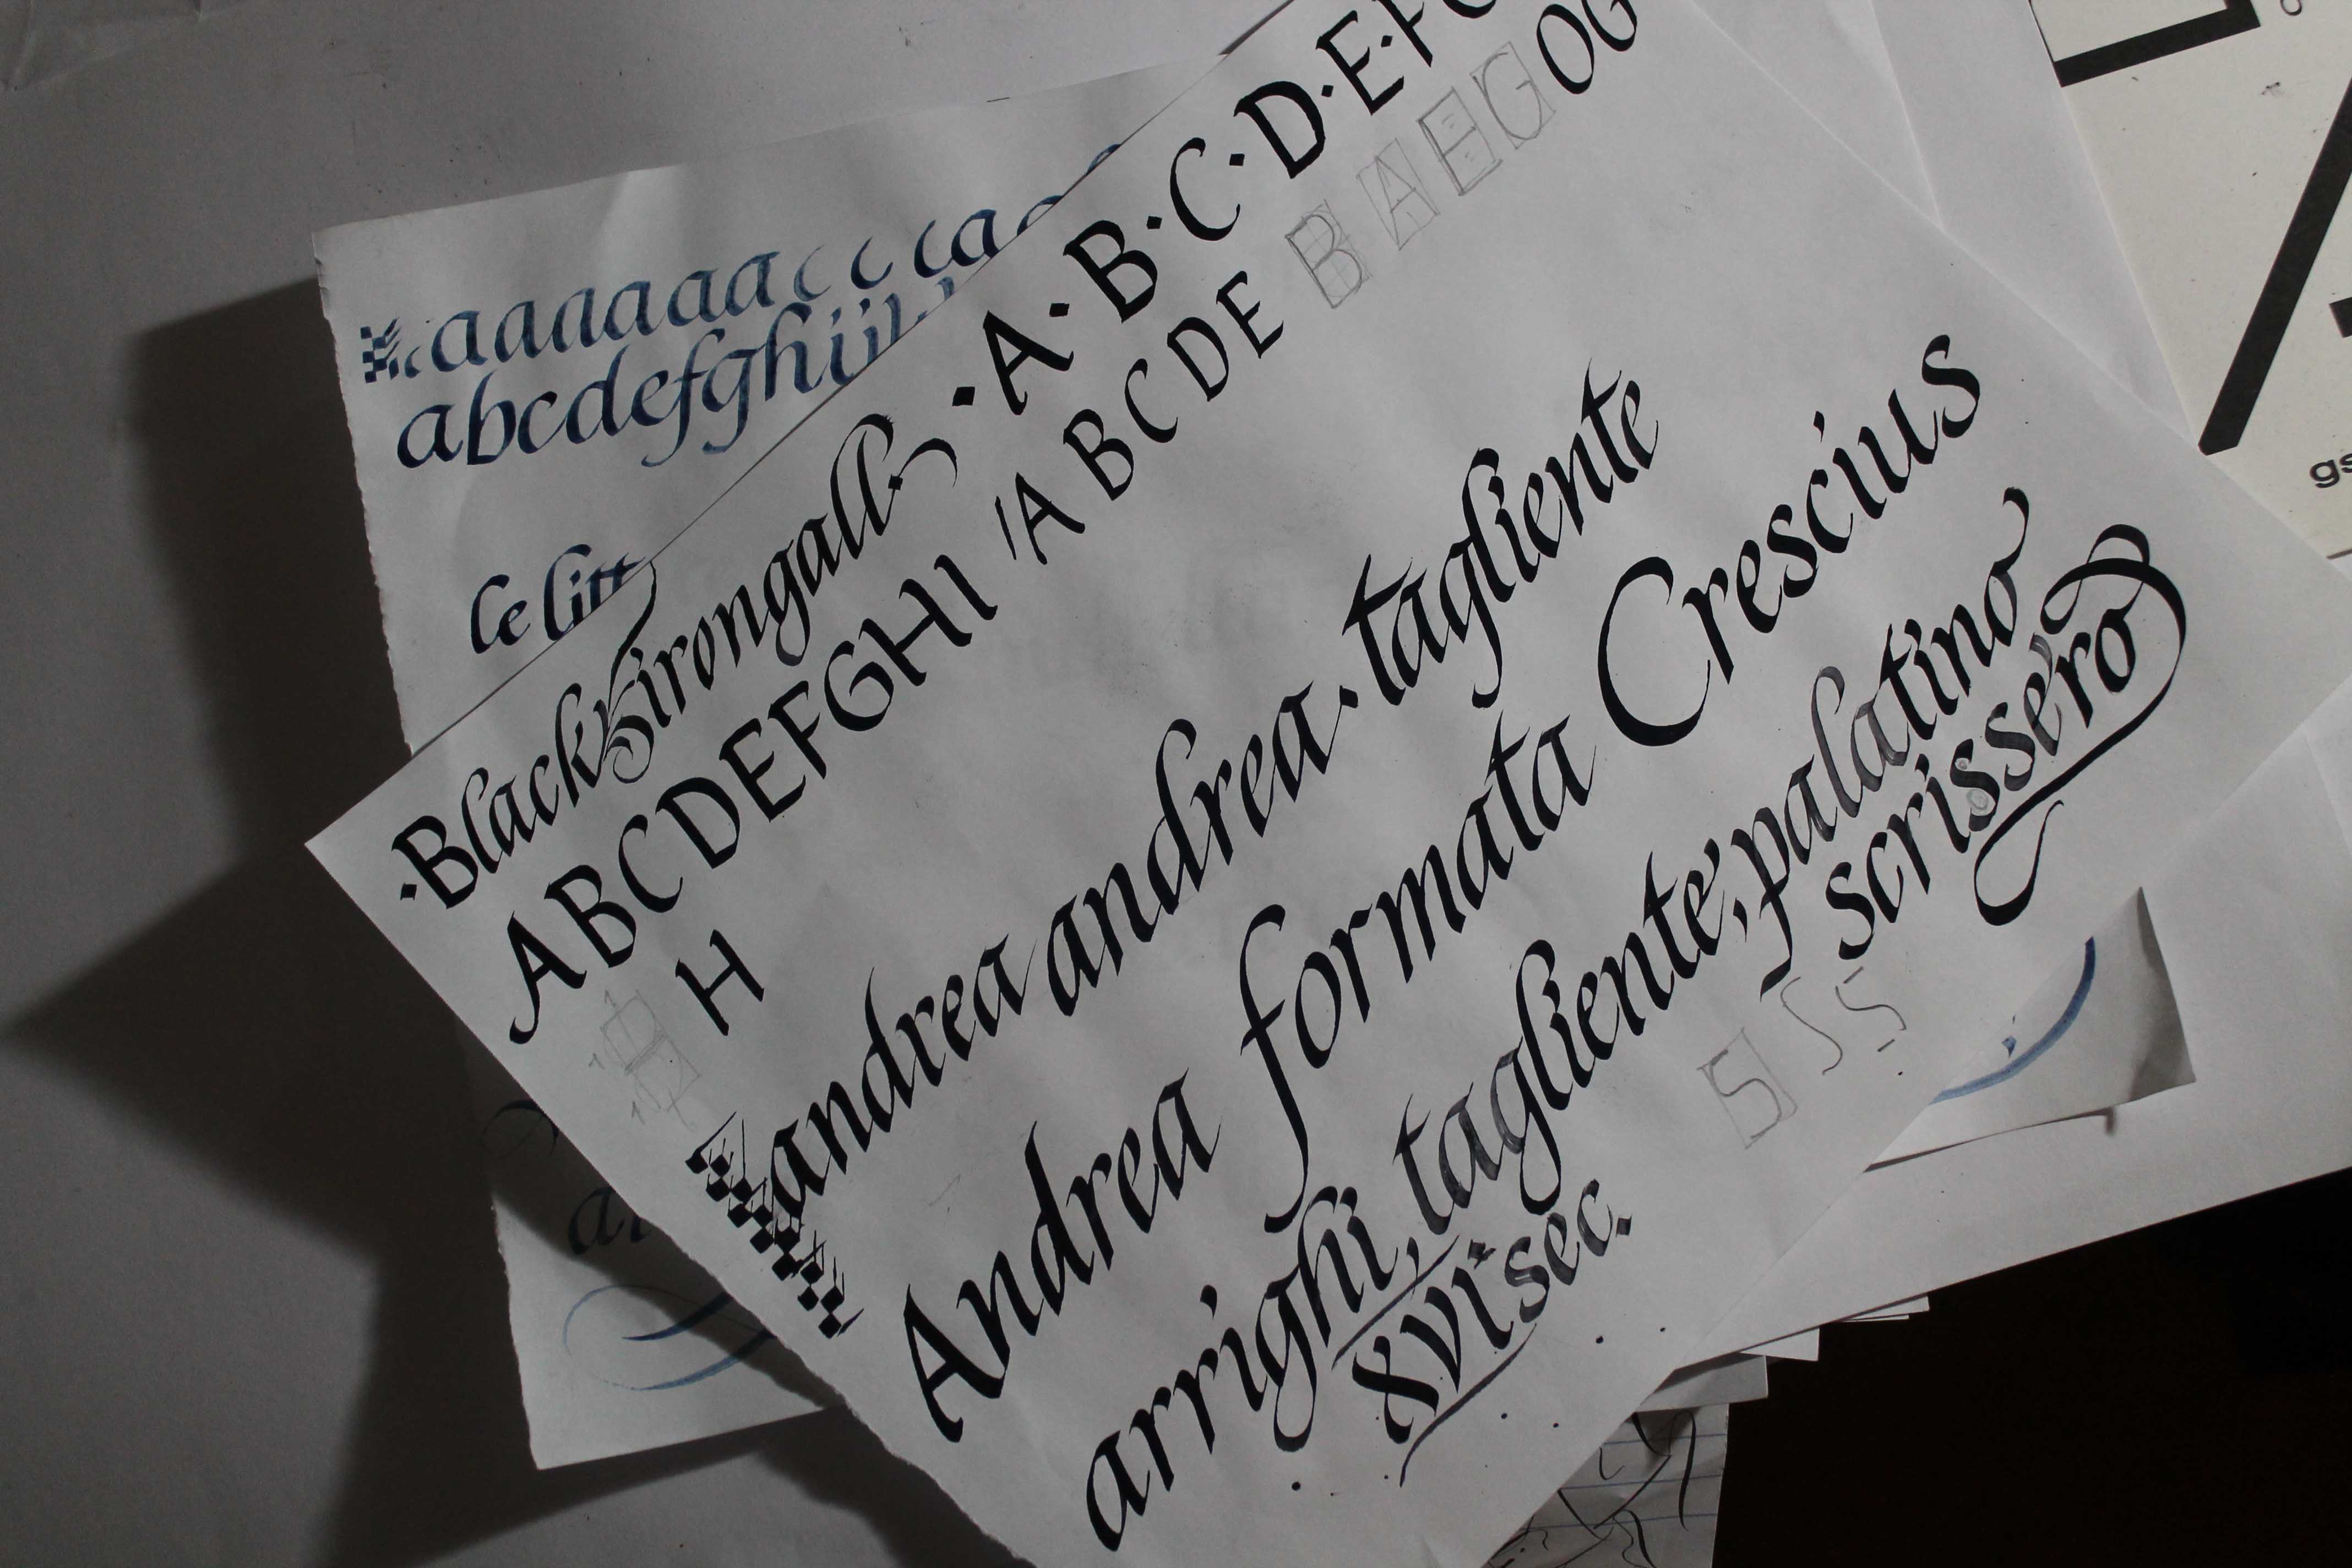 aaaaaaccca
abcdefghiijl
le litt
·Black & irongall· ·A·B·C·D·E·F
ABCDEFGHI ABCDE BAEG OG
H
andrea andrea · tagliente
Andrea formata Crescius
arrighi, tagliente, palatino
scrissero
xvi sec.
S
gs